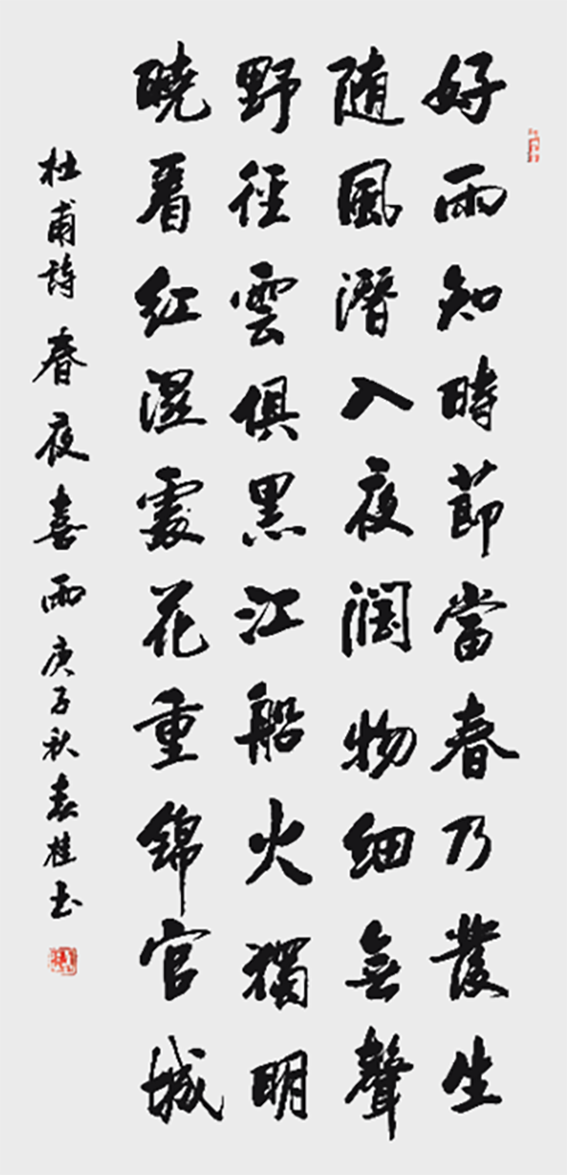 好雨知時節當春乃發生
随風潛入夜潤物細無聲
野徑雲俱黑江船火獨明
曉看紅濕處花重錦官城
杜甫詩春夜喜雨庚子秋春桂書